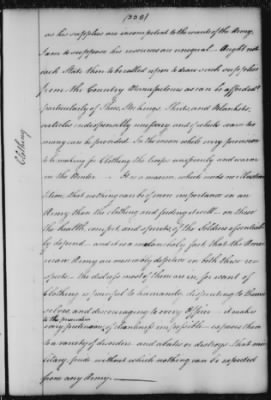 (338)
Clothing
as his supplies are incompetent to the wants of the Army,
I am to suppose his resources are unequal. Ought not
each State then to be called upon to draw such supplies
from the Country Manufactures as can be afforded
particularly of Shoes, Stockings, Shirts, and Blankets,
articles indispensably necessary and of which scarce too
many can be provided. In the mean while every provision
to be making for Clothing the troops uniformly and warm
in the Winter — It is a maxim which needs no illustra-
tion, that nothing can be of more importance in an
Army than the clothing and feeding it well — on these
the health, comfort, and spirits of the Soldiers essentially
depend — and it is a melancholy fact that the Amer-
ican Army are miserably defective in both these re-
spects — the distress most of them are in for want of
Clothing is painful to humanity, dispiriting to them-
selves, and discouraging to every Officer — it makes
every pretension to the promotion of cleanliness impossible — exposes them
to a variety of disorders — and abates or destroys that mi-
litary pride without which nothing can be expected
from any Army. —